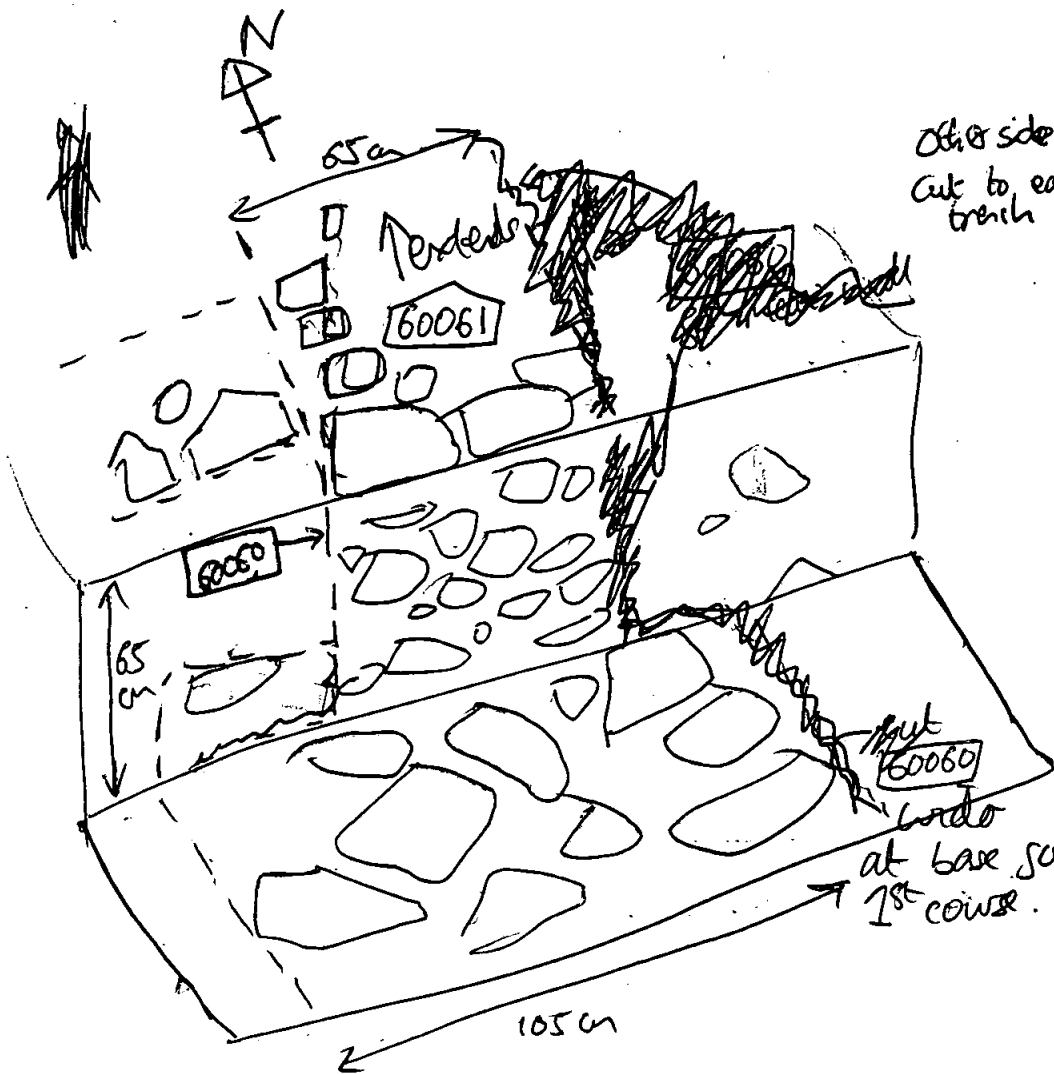 N
65 cm
Other side
Cut to ea
trench
extends
60061
60060
65
cm
cut
60060
wider
at base so
1st course.
105 cm